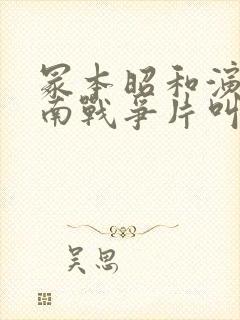 冢本昭和演
南戰爭片叫
吴思